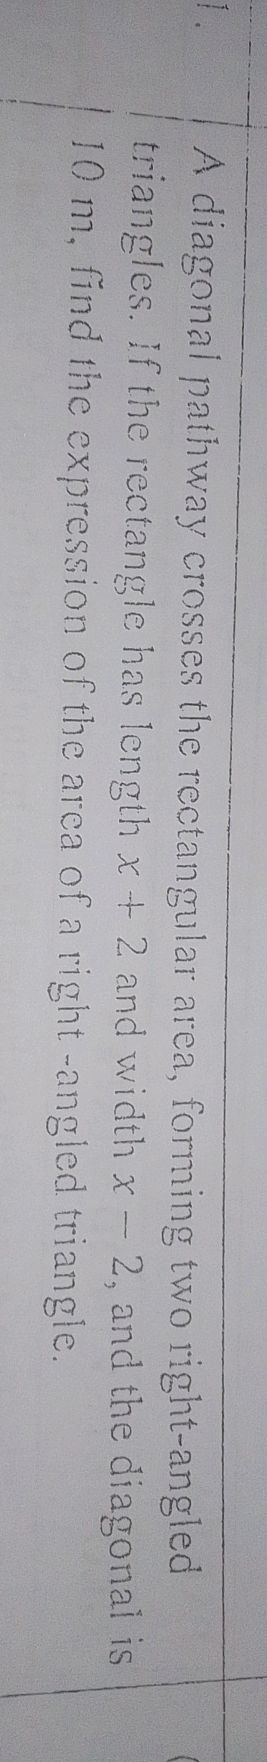 1. A diagonal pathway crosses the rectangular area, forming two right-angled
triangles. If the rectangle has length x + 2 and width x − 2, and the diagonal is
10 m, find the expression of the area of a right -angled triangle.